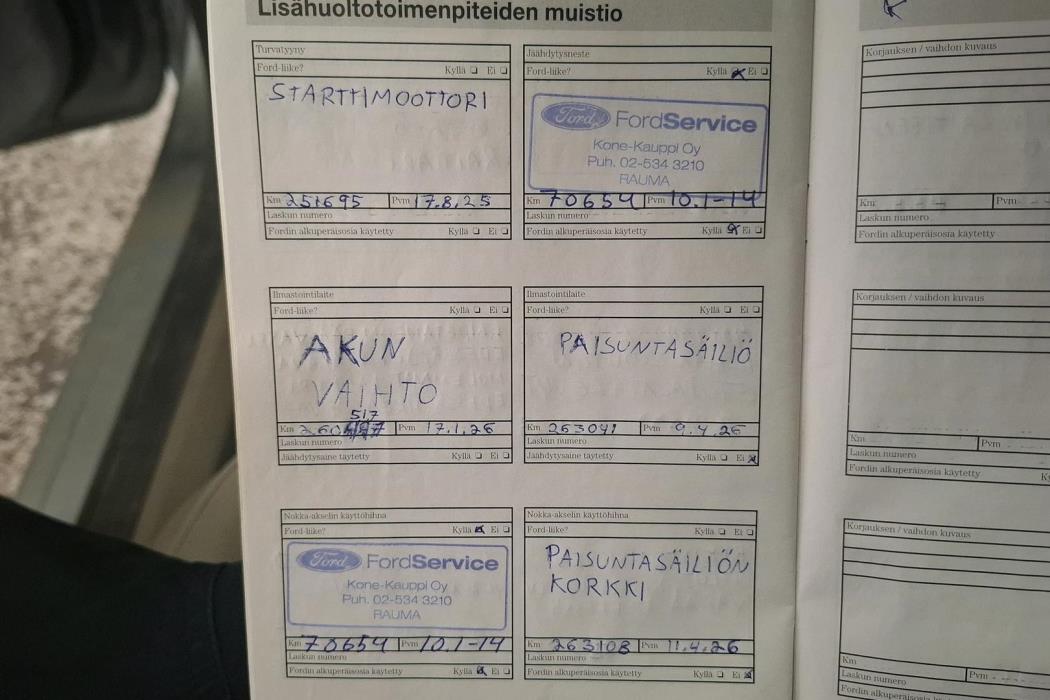 Lisähuoltotoimenpiteiden muistio
Turvatyyny
Ford-liike? Kyllä Ei
STARTTIMOOTTORI
Km 251695 Pvm 17.8.25
Laskun numero
Fordin alkuperäisosia käytetty Kyllä Ei
Jäähdytysneste
Ford-liike? Kyllä Ei
Ford FordService
Kone-Kauppi Oy
Puh. 02-534 3210
RAUMA
Km 70654 Pvm 10.1-14
Laskun numero
Fordin alkuperäisosia käytetty Kyllä Ei
Ilmastointilaite
Ford-liike? Kyllä Ei
AKUN
VAIHTO
517
Km 260 Pvm 17.1.26
Laskun numero
Jäähdytysaine täytetty Kyllä Ei
Ilmastointilaite
Ford-liike? Kyllä Ei
PAISUNTASÄILIÖ
Km 263041 Pvm 9.4.26
Laskun numero
Jäähdytysaine täytetty Kyllä Ei
Nokka-akselin käyttöhihna
Ford-liike? Kyllä Ei
Ford FordService
Kone-Kauppi Oy
Puh. 02-534 3210
RAUMA
Km 70654 Pvm 10.1-14
Laskun numero
Fordin alkuperäisosia käytetty Kyllä Ei
Nokka-akselin käyttöhihna
Ford-liike? Kyllä Ei
PAISUNTASÄILIÖN
KORKKI
Km 263108 Pvm 11.4.26
Laskun numero
Fordin alkuperäisosia käytetty Kyllä Ei
Korjauksen / vaihdon kuvaus
Km Pvm
Laskun numero
Fordin alkuperäisosia käytetty
Korjauksen / vaihdon kuvaus
Km Pvm
Laskun numero
Fordin alkuperäisosia käytetty
Korjauksen / vaihdon kuvaus
Km Pvm
Laskun numero
Fordin alkuperäisosia käytetty